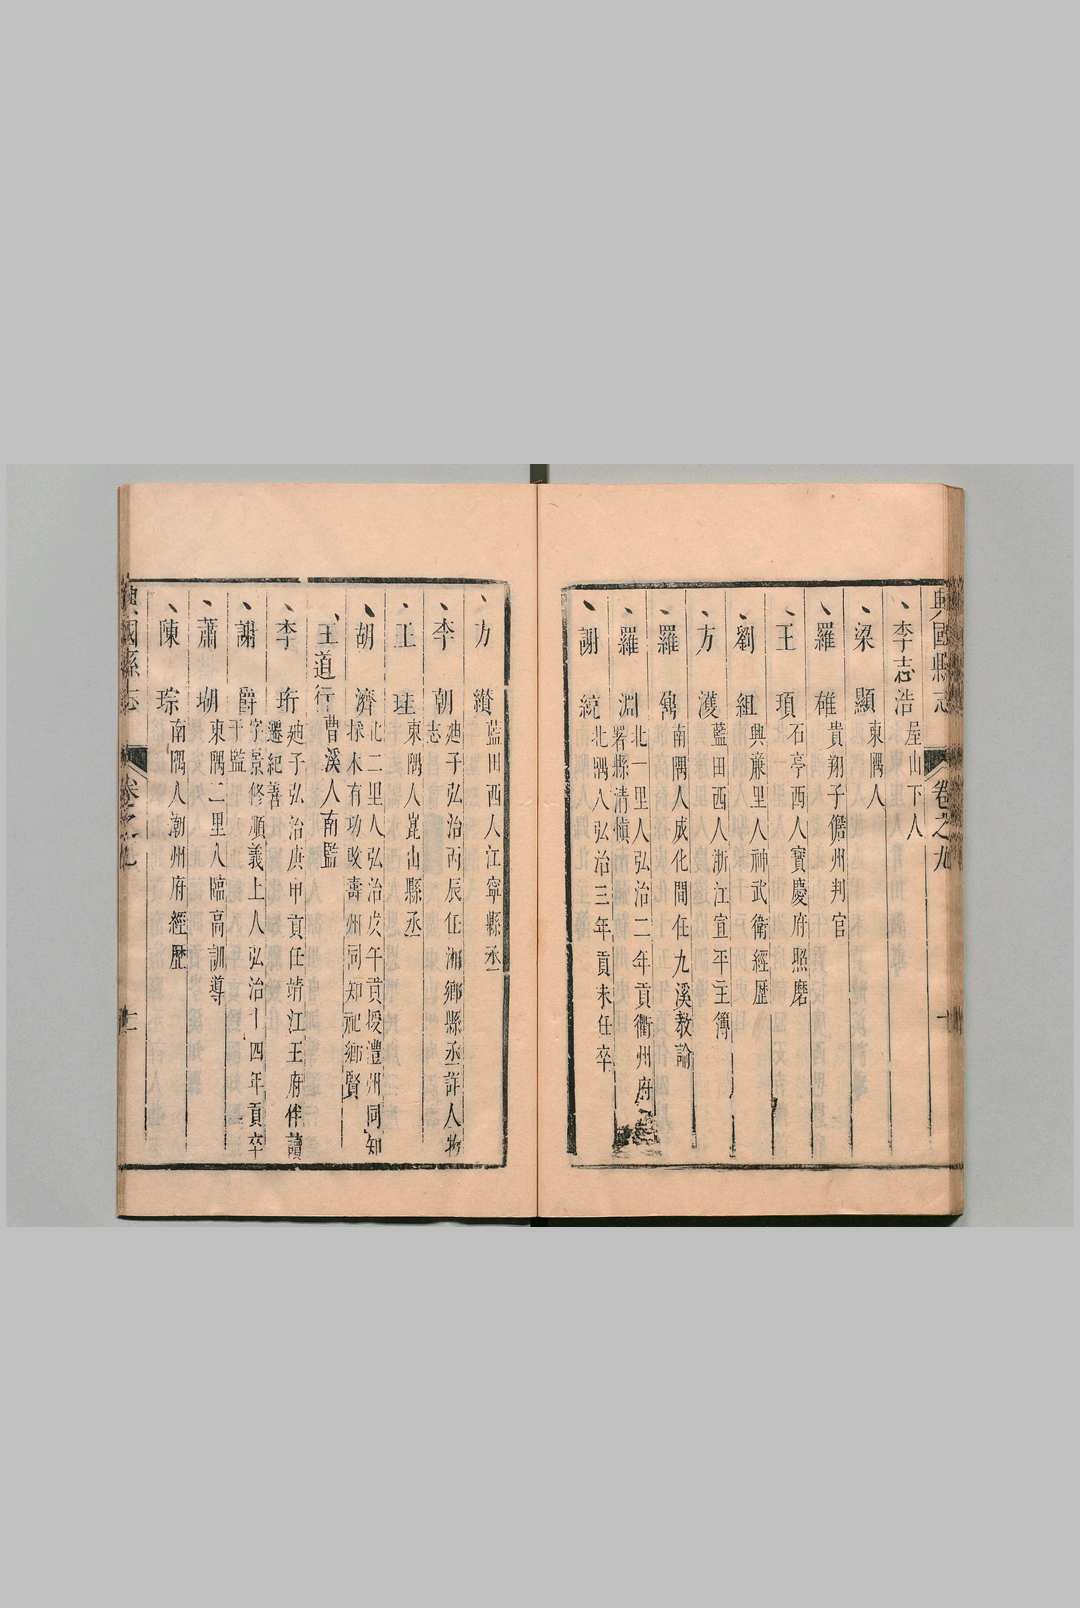 興國縣志 卷之九
李志浩 屋山下人
梁顯 東隅人
羅雄 貴翔子儋州判官
王頊 石亭西人寶慶府照磨
劉組 興亷里人神武衛經歷
方濩 藍田西人浙江宣平主簿
羅雋 南隅人成化間任九溪教諭
羅淵 北一里人弘治二年貢衢州府
署縣清慎
謝統 北隅人弘治三年貢未任卒
方纘 藍田西人江寧縣丞
李朝 廸子弘治丙辰任湘鄉縣丞詳人物
志
王珪 東隅人崑山縣丞
胡濟 北二里人弘治戊午貢授澧州同知
採木有功改壽州同知祀鄉賢
王道行 曹溪人南監
李珩 廸子弘治庚申貢任靖江王府伴讀
遷紀善
謝爵 字景修順義上人弘治十四年貢卒
于監
蕭堋 東隅二里人臨高訓導
陳琮 南隅人潮州府經歷
興國縣志 卷之九